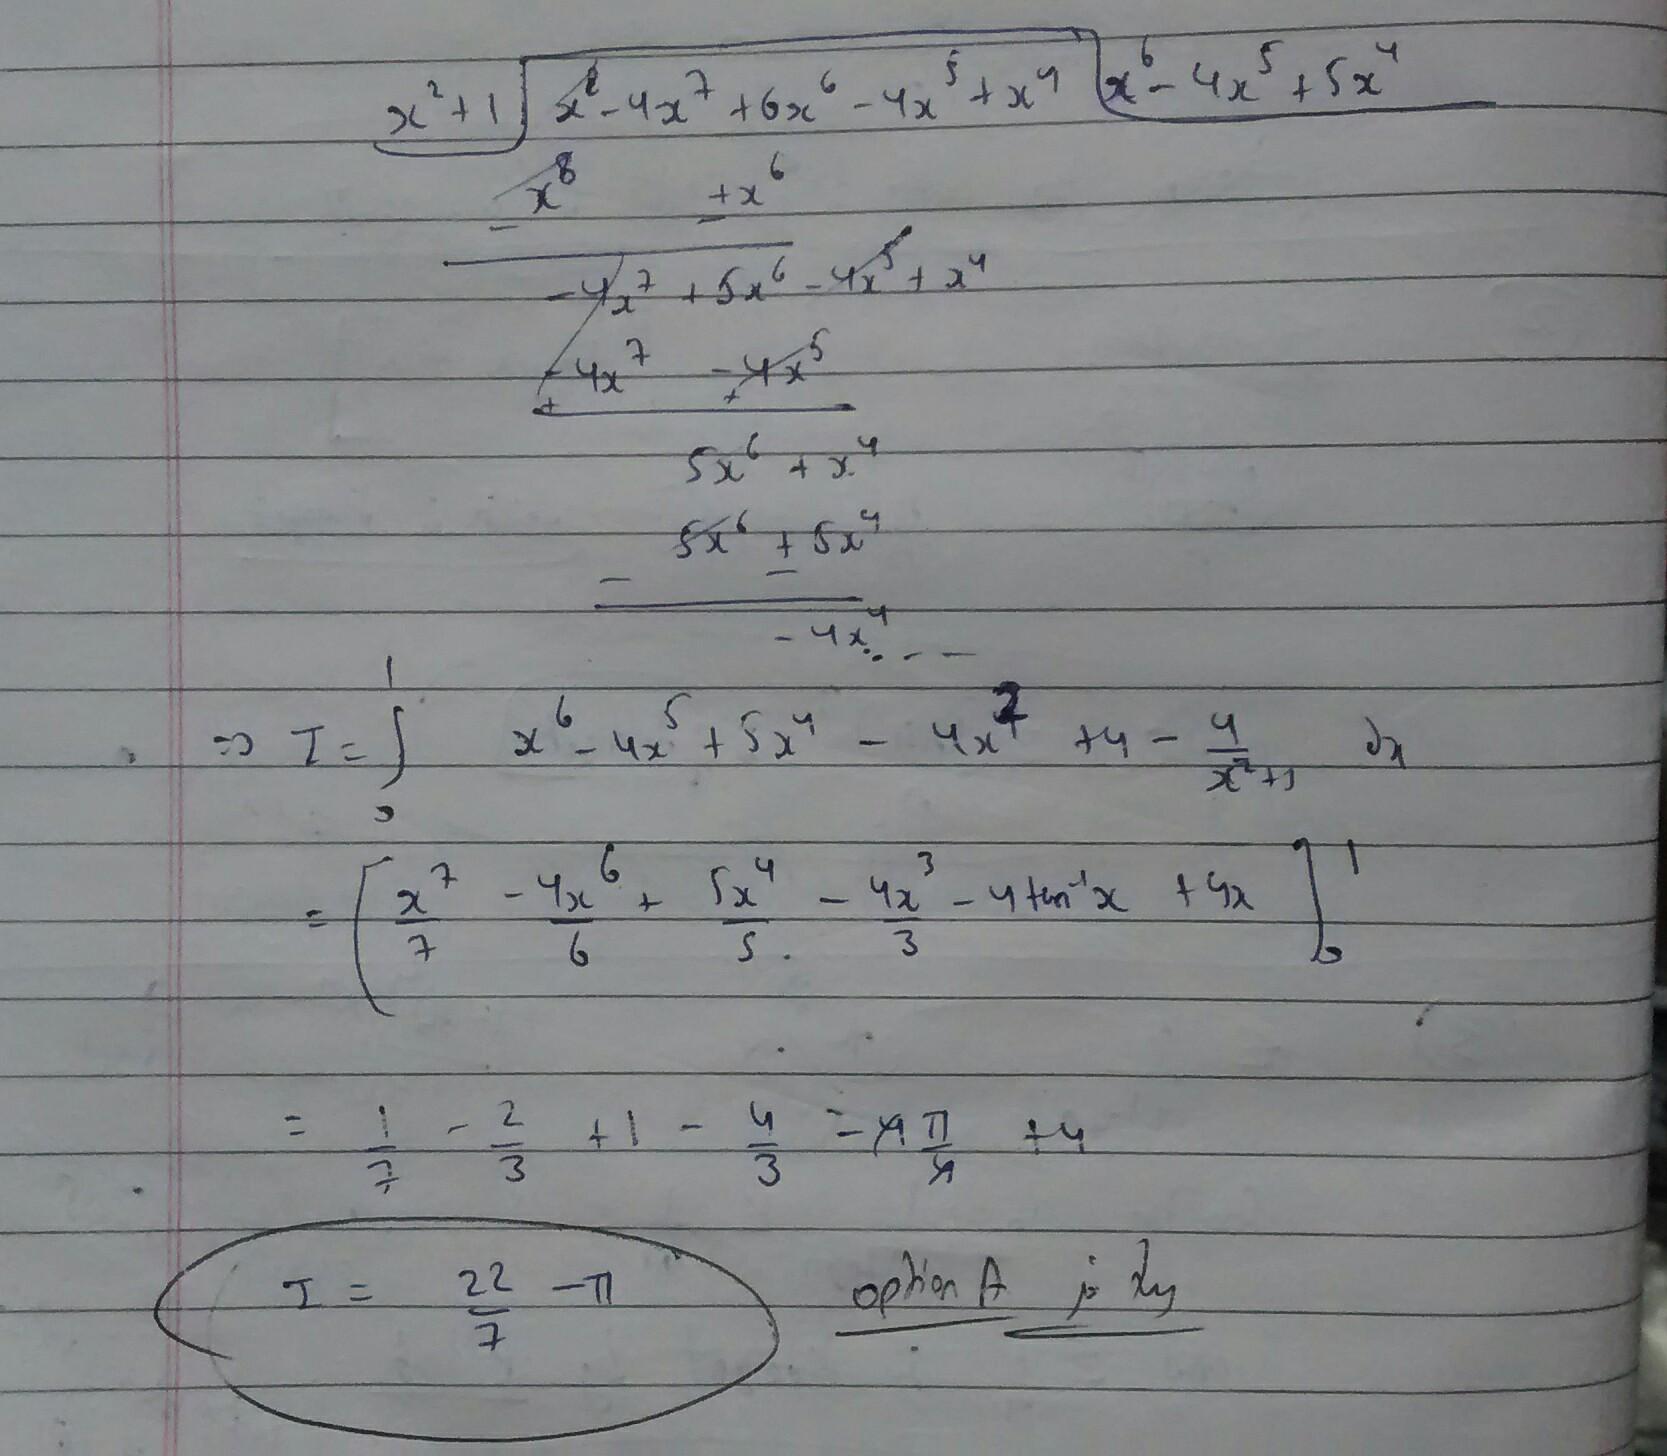 x² + 1 | x⁸ - 4x⁷ + 6x⁶ - 4x⁵ + x⁴ | x⁶ - 4x⁵ + 5x⁴
x⁸ + x⁶
- -
- 4x⁷ + 5x⁶ - 4x⁵ + x⁴
- 4x⁷ - 4x⁵
+ +
5x⁶ + x⁴
5x⁶ + 5x⁴
- -
- 4x⁴ . - -
⇒ I = ∫₀¹ x⁶ - 4x⁵ + 5x⁴ - 4x² + 4 - 4/(x²+1) dx
= [ x⁷/7 - 4x⁶/6 + 5x⁴/5 - 4x³/3 - 4 tan⁻¹x + 4x ]₀¹
= 1/7 - 2/3 + 1 - 4/3 - 4 π/4 + 4
I = 22/7 - π option A